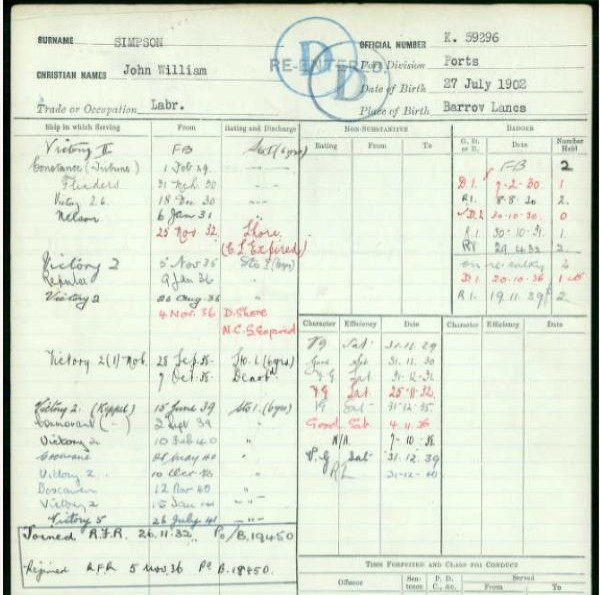 SURNAME SIMPSON OFFICIAL NUMBER K. 59296
DD
RE-ENTERED
CHRISTIAN NAMES John William Port Division Ports
Date of Birth 27 July 1902
Trade or Occupation Labr. Place of Birth Barrov Lancs
Ship in which Serving From Rating and Discharge NON-SUBSTANTIVE BADGES
Rating From To G, D, or R. Date Number Held
Victory II FB Sto I (6yrs) FB 2
Constance 1 Feb 29 D.1. 9-2-30 1
Flinders 31 Mch 30 R1. 8-8-30 2.
18 Dec 30 D.2 20-10-30 0
Nelson 6 Jan 31 R.1 30-10-31 1
25 Nov. 32 Shore R1 29.4.32 2
(C.S. Expired)
Victory 2 5 Nov 35 Sto I on re-entry 2
Repulse 9 Jan 36 " D.1 20-10-36 1
Victory 2 26 Aug. 36 " R1. 19.11.39 2
4 Nov. 36 D. Shore
N.C.S. Expired
Character Efficiency Date Character Efficiency Date
VG Sat 31.12.29
Sat 31.12.30
V.G Sat 31-2-31
VG Sat 25-11-32
VG Sat 31-12-35
Good Sat 4.11.36
N/A 7-10-38
V.G Sat 31.12.39
31-12-40
Victory 2 28 Sep. 38 Sto. 1. (6yrs)
7 Oct. 38
Victory 2. (Keppel) 15 June 39 Sto 1. (6yrs)
2 Sept 39 "
Victory 2 10 Feb 40 "
Cochrane May 40 "
Victory 2 "
Boscawen 12 40 "
Victory 2
Victory 5 26 July 41 - " -
Joined R.F.R. 26.11.32 Po/B.19450
Rejoined RFR 5 Nov 36 Po B.18450.
TIME FORFEITED AND CLASS FOR CONDUCT
Offence Sentence P. D. C., &c. Served
From To